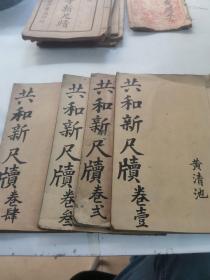 共和新尺牘卷壹
黄清池
共和新尺牘卷弍
共和新尺牘卷叁
共和新尺牘卷肆